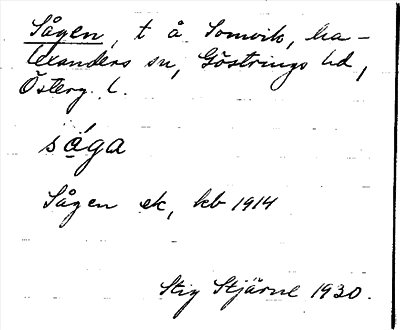 Sågen, t å Somvik, Ka-
lexanders sn, Göstrings hd,
Österg. l.
såga
Sågen ek, kb 1914
Stig Stjärne 1930.